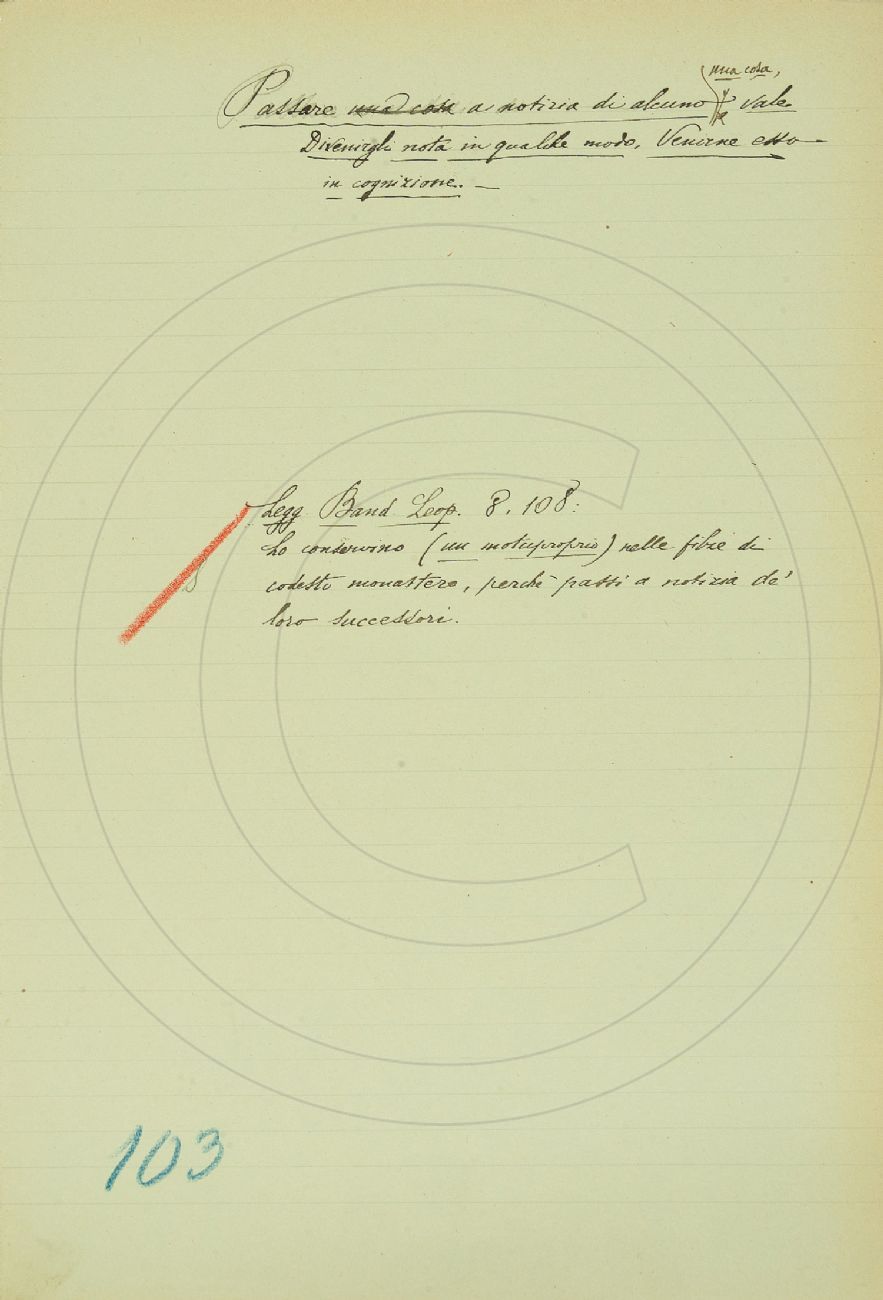 una cosa,
Passare una cosa a notizia di alcuno vale
Divenirgli nota in qualche modo, Venirne esso
in cognizione. —
Legg. Band. Leop. 8. 108:
Lo conservino (un motuproprio) nelle filze di
codesto monastero, perchè passi a notizia de'
loro successori.
103